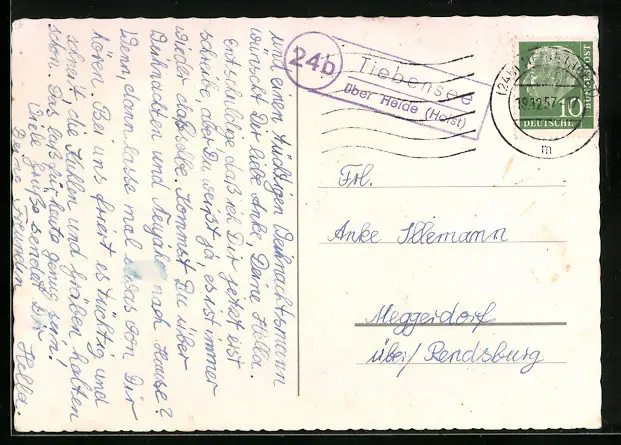 und einen tüchtigen Weihnachtsmann
wünscht Dir liebe Anke, Deine Hella.
Entschuldige daß ich Dir jetzt erst
schreibe, aber Du weißt ja, es ist immer
wieder dasselbe. Kommst Du über
Weihnachten und Neujahr nach Hause?
Wenn, dann lasse mal etwas von Dir
hören. Bei uns friert es tüchtig und
schneit, die Kuhlen und Gräben halten
schon. Das laß für heute genug sein!
Viele Grüße sendet Dir
Deine Freundin
Hella.
24b
Tiebensee
über Heide (Holst)
19.12.57
m
10
DEUTSCHE
BUNDESPOST
Frl.
Anke Illemann
Meggerdorf
über/ Rendsburg